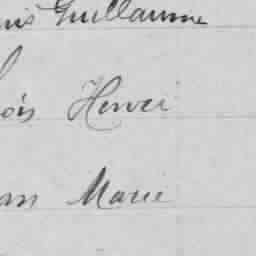 Guillaume
ois Hervei
an Marie